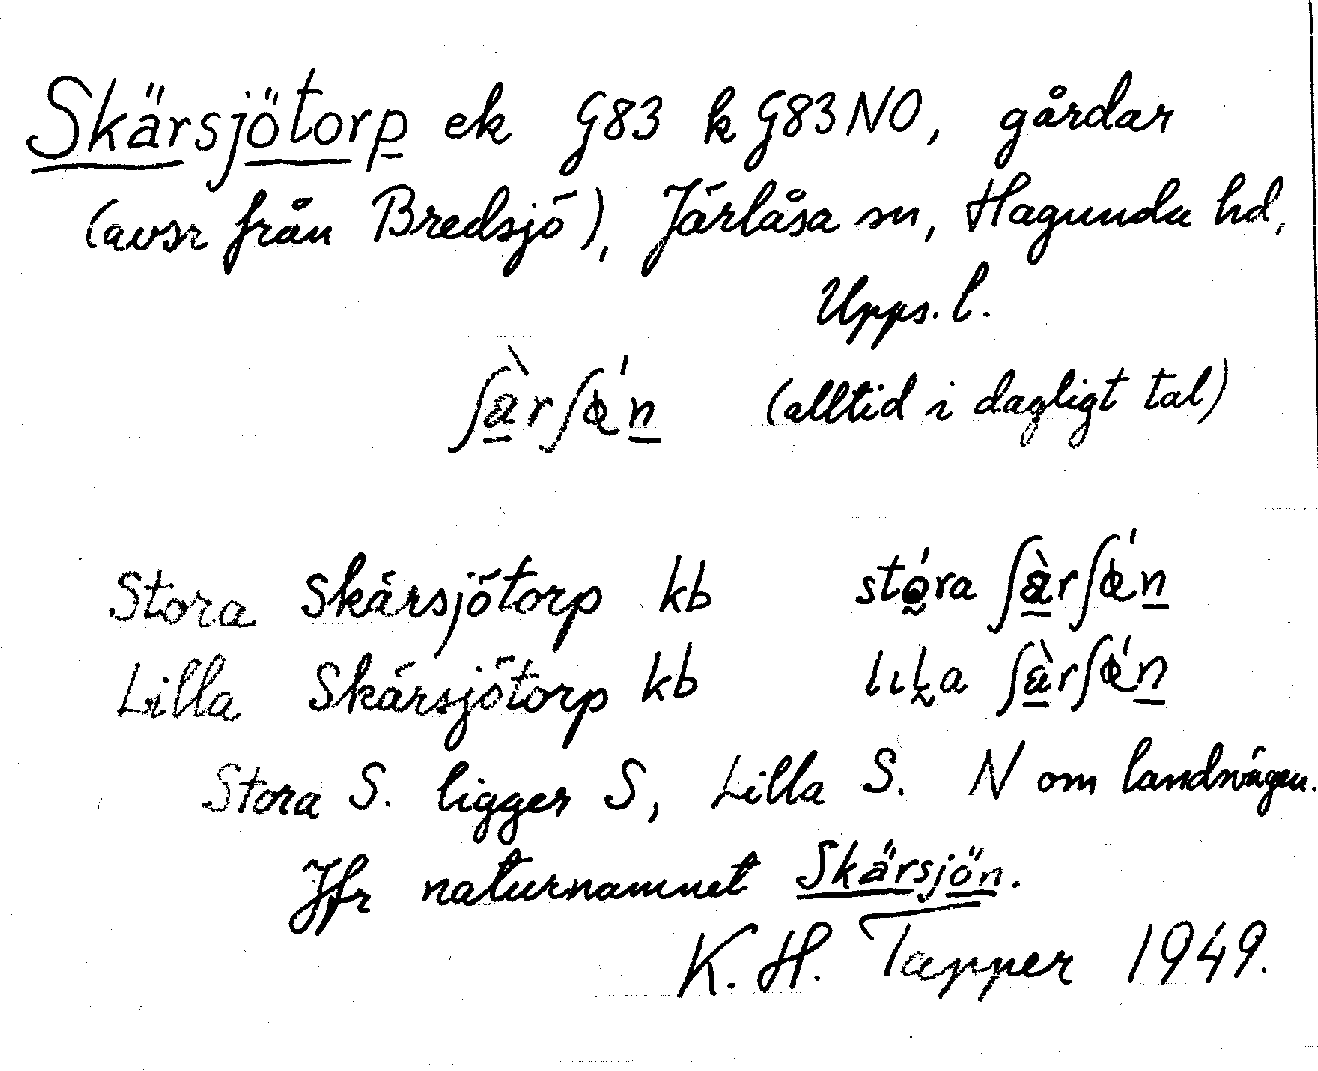 Skärsjötorp ek G83 k G83NO, gårdar
(avsr från Bredsjö), Järlåsa sn, Hagunda hd,
Upps. l.
(alltid i dagligt tal)
Stora Skärsjötorp kb
Lilla Skärsjötorp kb
Stora S. ligger S, Lilla S. N om landsvägen.
Jfr naturnamnet Skärsjön.
K. H. Tapper 1949.